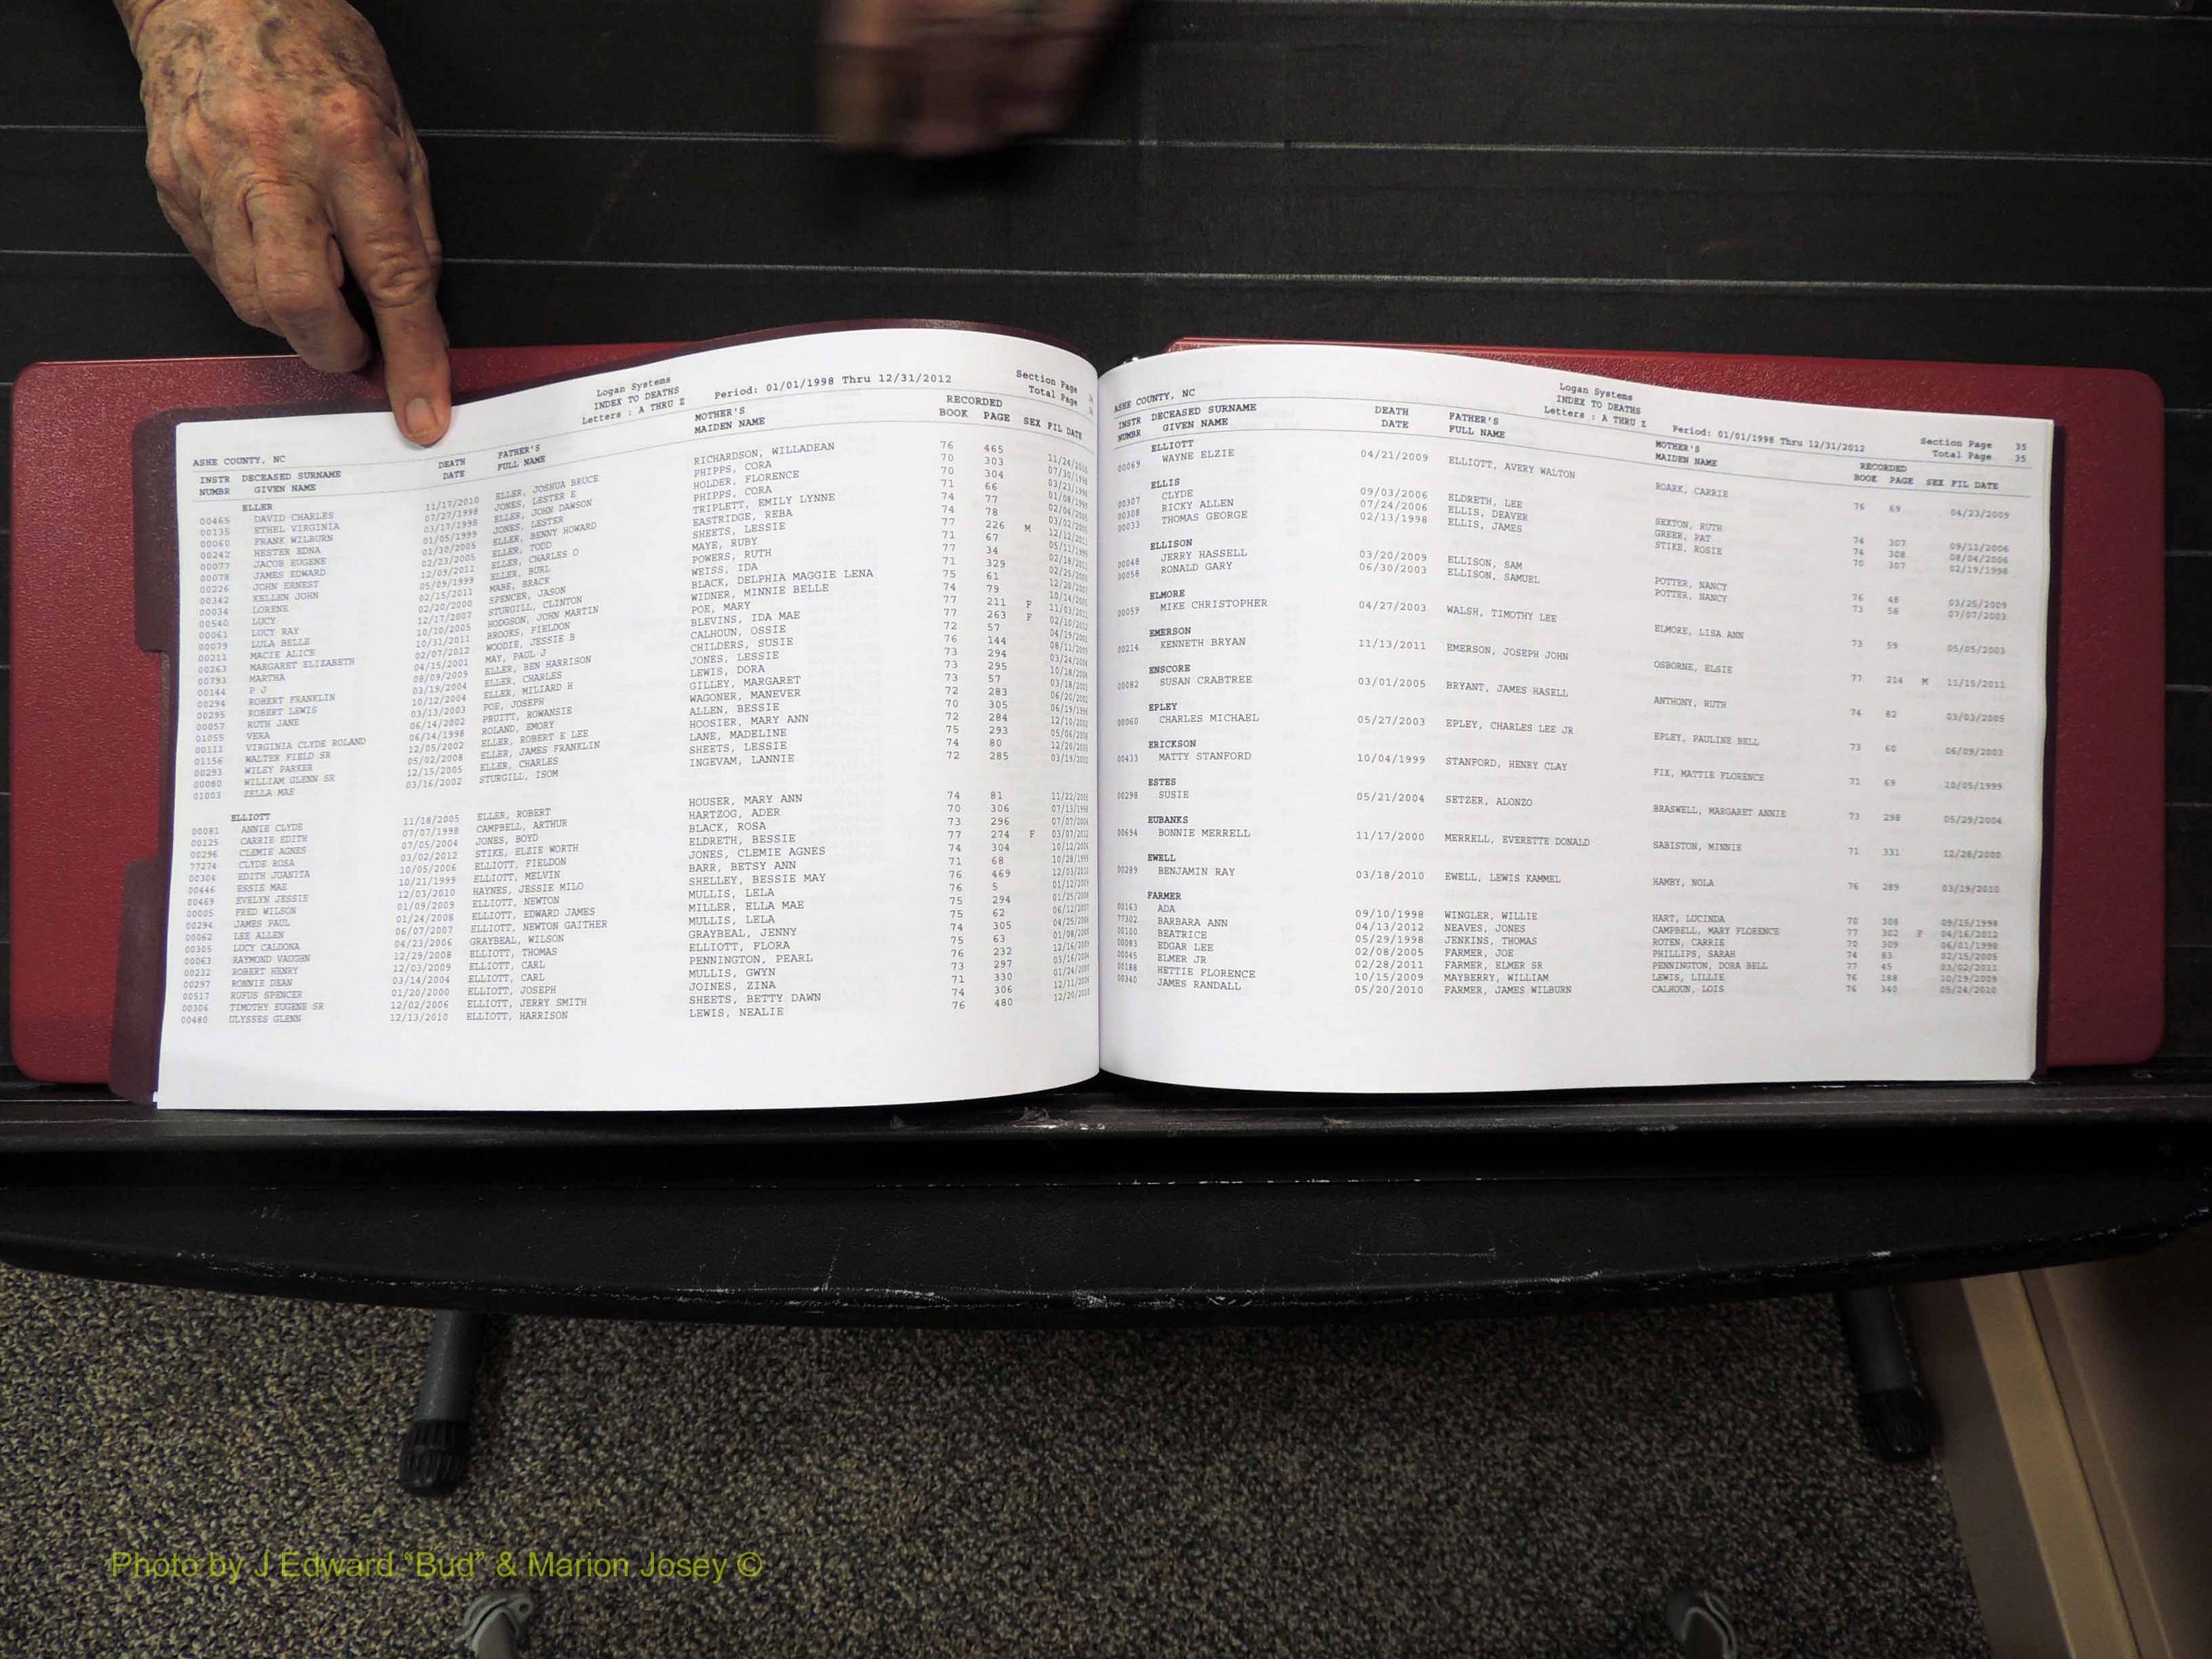 ASHE COUNTY, NC
Logan Systems
INDEX TO DEATHS
Letters : A THRU Z
Period: 01/01/1998 Thru 12/31/2012
Section Page
Total Page
INSTR DECEASED SURNAME DEATH FATHER'S MOTHER'S RECORDED
NUMBR GIVEN NAME DATE FULL NAME MAIDEN NAME BOOK PAGE SEX FIL DATE
ELLER
00465 DAVID CHARLES 11/17/2010 ELLER, JOSHUA BRUCE RICHARDSON, WILLADEAN 76 465 11/24/2010
00135 ETHEL VIRGINIA 07/27/1998 JONES, LESTER E PHIPPS, CORA 70 303 07/30/1998
00060 FRANK WILBURN 03/17/1998 ELLER, JOHN DAWSON HOLDER, FLORENCE 70 304 03/23/1998
00242 HESTER EDNA 01/05/1999 JONES, LESTER PHIPPS, CORA 71 66 01/08/1999
00077 JACOB EUGENE 01/30/2005 ELLER, BENNY HOWARD TRIPLETT, EMILY LYNNE 74 77 02/04/2005
00078 JAMES EDWARD 02/23/2005 ELLER, TODD EASTRIDGE, REBA 74 78 03/02/2005
00226 JOHN ERNEST 12/09/2011 ELLER, CHARLES O SHEETS, LESSIE 77 226 M 12/12/2011
00342 KELLEN JOHN 05/09/1999 ELLER, BURL MAYE, RUBY 71 67 05/11/1999
00034 LORENE 02/15/2011 MABE, BRACK POWERS, RUTH 77 34 02/18/2011
00540 LUCY 02/20/2000 SPENCER, JASON WEISS, IDA 71 329 02/25/2000
00061 LUCY RAY 12/17/2007 STURGILL, CLINTON BLACK, DELPHIA MAGGIE LENA 75 61 12/20/2007
00079 LULA BELLE 10/10/2005 HODGSON, JOHN MARTIN WIDNER, MINNIE BELLE 74 79 10/14/2005
00211 MACIE ALICE 10/31/2011 BROOKS, FIELDON POE, MARY 77 211 F 11/03/2011
00263 MARGARET ELIZABETH 02/07/2012 WOODIE, JESSIE B BLEVINS, IDA MAE 77 263 F 02/10/2012
00793 MARTHA 04/15/2001 MAY, PAUL J CALHOUN, OSSIE 72 57 04/19/2001
00144 P J 08/09/2009 ELLER, BEN HARRISON CHILDERS, SUSIE 76 144 08/11/2009
00294 ROBERT FRANKLIN 03/19/2004 ELLER, CHARLES JONES, LESSIE 73 294 03/24/2004
00295 ROBERT LEWIS 10/12/2004 ELLER, MILIARD H LEWIS, DORA 73 295 10/18/2004
00057 RUTH JANE 03/13/2003 POE, JOSEPH GILLEY, MARGARET 73 57 03/18/2003
01055 VERA 06/14/2002 PRUITT, ROWANSIE WAGONER, MANEVER 72 283 06/20/2002
00111 VIRGINIA CLYDE ROLAND 06/14/1998 ROLAND, EMORY ALLEN, BESSIE 70 305 06/19/1998
01156 WALTER FIELD SR 12/05/2002 ELLER, ROBERT E LEE HOOSIER, MARY ANN 72 284 12/10/2002
00293 WILEY PARKER 05/02/2008 ELLER, JAMES FRANKLIN LANE, MADELINE 75 293 05/06/2008
00080 WILLIAM GLENN SR 12/15/2005 ELLER, CHARLES SHEETS, LESSIE 74 80 12/20/2005
01003 ZELLA MAE 03/16/2002 STURGILL, ISOM INGEVAM, LANNIE 72 285 03/19/2002
ELLIOTT
00081 ANNIE CLYDE 11/18/2005 ELLER, ROBERT HOUSER, MARY ANN 74 81 11/22/2005
00125 CARRIE EDITH 07/07/1998 CAMPBELL, ARTHUR HARTZOG, ADER 70 306 07/13/1998
00296 CLEMIE AGNES 07/05/2004 JONES, BOYD BLACK, ROSA 73 296 07/07/2004
77274 CLYDE ROSA 03/02/2012 STIKE, ELZIE WORTH ELDRETH, BESSIE 77 274 F 03/07/2012
00304 EDITH JUANITA 10/05/2006 ELLIOTT, FIELDON JONES, CLEMIE AGNES 74 304 10/12/2006
00446 ESSIE MAE 10/21/1999 ELLIOTT, MELVIN BARR, BETSY ANN 71 68 10/28/1999
00469 EVELYN JESSIE 12/03/2010 HAYNES, JESSIE MILO SHELLEY, BESSIE MAY 76 469 12/03/2010
00005 FRED WILSON 01/09/2009 ELLIOTT, NEWTON MULLIS, LELA 76 5 01/12/2009
00294 JAMES PAUL 01/24/2008 ELLIOTT, EDWARD JAMES MILLER, ELLA MAE 75 294 01/25/2008
00062 LEE ALLEN 06/07/2007 ELLIOTT, NEWTON GAITHER MULLIS, LELA 75 62 06/12/2007
00305 LUCY CALDONA 04/23/2006 GRAYBEAL, WILSON GRAYBEAL, JENNY 74 305 04/25/2006
00063 RAYMOND VAUGHN 12/29/2008 ELLIOTT, THOMAS ELLIOTT, FLORA 75 63 01/08/2009
00232 ROBERT HENRY 12/03/2009 ELLIOTT, CARL PENNINGTON, PEARL 76 232 12/16/2009
00297 RONNIE DEAN 03/14/2004 ELLIOTT, CARL MULLIS, GWYN 73 297 03/16/2004
00517 RUFUS SPENCER 01/20/2000 ELLIOTT, JOSEPH JOINES, ZINA 71 330 01/24/2000
00306 TIMOTHY EUGENE SR 12/02/2006 ELLIOTT, JERRY SMITH SHEETS, BETTY DAWN 74 306 12/11/2006
00480 ULYSSES GLENN 12/13/2010 ELLIOTT, HARRISON LEWIS, NEALIE 76 480 12/20/2010
ASHE COUNTY, NC
Logan Systems
INDEX TO DEATHS
Letters : A THRU Z
Period: 01/01/1998 Thru 12/31/2012
Section Page 35
Total Page 35
INSTR DECEASED SURNAME DEATH FATHER'S MOTHER'S RECORDED
NUMBR GIVEN NAME DATE FULL NAME MAIDEN NAME BOOK PAGE SEX FIL DATE
ELLIOTT
00069 WAYNE ELZIE 04/21/2009 ELLIOTT, AVERY WALTON ROARK, CARRIE 76 69 04/23/2009
ELLIS
00307 CLYDE 09/03/2006 ELDRETH, LEE SEXTON, RUTH 74 307 09/11/2006
00308 RICKY ALLEN 07/24/2006 ELLIS, DEAVER GREER, PAT 74 308 08/04/2006
00033 THOMAS GEORGE 02/13/1998 ELLIS, JAMES STIKE, ROSIE 70 307 02/19/1998
ELLISON
00048 JERRY HASSELL 03/20/2009 ELLISON, SAM POTTER, NANCY 76 48 03/25/2009
00058 RONALD GARY 06/30/2003 ELLISON, SAMUEL POTTER, NANCY 73 58 07/07/2003
ELMORE
00059 MIKE CHRISTOPHER 04/27/2003 WALSH, TIMOTHY LEE ELMORE, LISA ANN 73 59 05/05/2003
EMERSON
00214 KENNETH BRYAN 11/13/2011 EMERSON, JOSEPH JOHN OSBORNE, ELSIE 77 214 M 11/15/2011
ENSCORE
00082 SUSAN CRABTREE 03/01/2005 BRYANT, JAMES HASELL ANTHONY, RUTH 74 82 03/03/2005
EPLEY
00060 CHARLES MICHAEL 05/27/2003 EPLEY, CHARLES LEE JR EPLEY, PAULINE BELL 73 60 06/09/2003
ERICKSON
00433 MATTY STANFORD 10/04/1999 STANFORD, HENRY CLAY FIX, MATTIE FLORENCE 71 69 10/05/1999
ESTES
00298 SUSIE 05/21/2004 SETZER, ALONZO BRASWELL, MARGARET ANNIE 73 298 05/29/2004
EUBANKS
00694 BONNIE MERRELL 11/17/2000 MERRELL, EVERETTE DONALD SABISTON, MINNIE 71 331 12/28/2000
EWELL
00289 BENJAMIN RAY 03/18/2010 EWELL, LEWIS KAMMEL HAMBY, NOLA 76 289 03/19/2010
FARMER
00163 ADA 09/10/1998 WINGLER, WILLIE HART, LUCINDA 70 308 09/15/1998
77302 BARBARA ANN 04/13/2012 NEAVES, JONES CAMPBELL, MARY FLORENCE 77 302 F 04/16/2012
00100 BEATRICE 05/29/1998 JENKINS, THOMAS ROTEN, CARRIE 70 309 06/01/1998
00083 EDGAR LEE 02/08/2005 FARMER, JOE PHILLIPS, SARAH 74 83 02/15/2005
00045 ELMER JR 02/28/2011 FARMER, ELMER SR PENNINGTON, DORA BELL 77 45 03/02/2011
00188 HETTIE FLORENCE 10/15/2009 MAYBERRY, WILLIAM LEWIS, LILLIE 76 188 10/19/2009
00340 JAMES RANDALL 05/20/2010 FARMER, JAMES WILBURN CALHOUN, LOIS 76 340 05/24/2010
Photo by J Edward “Bud” & Marion Josey ©